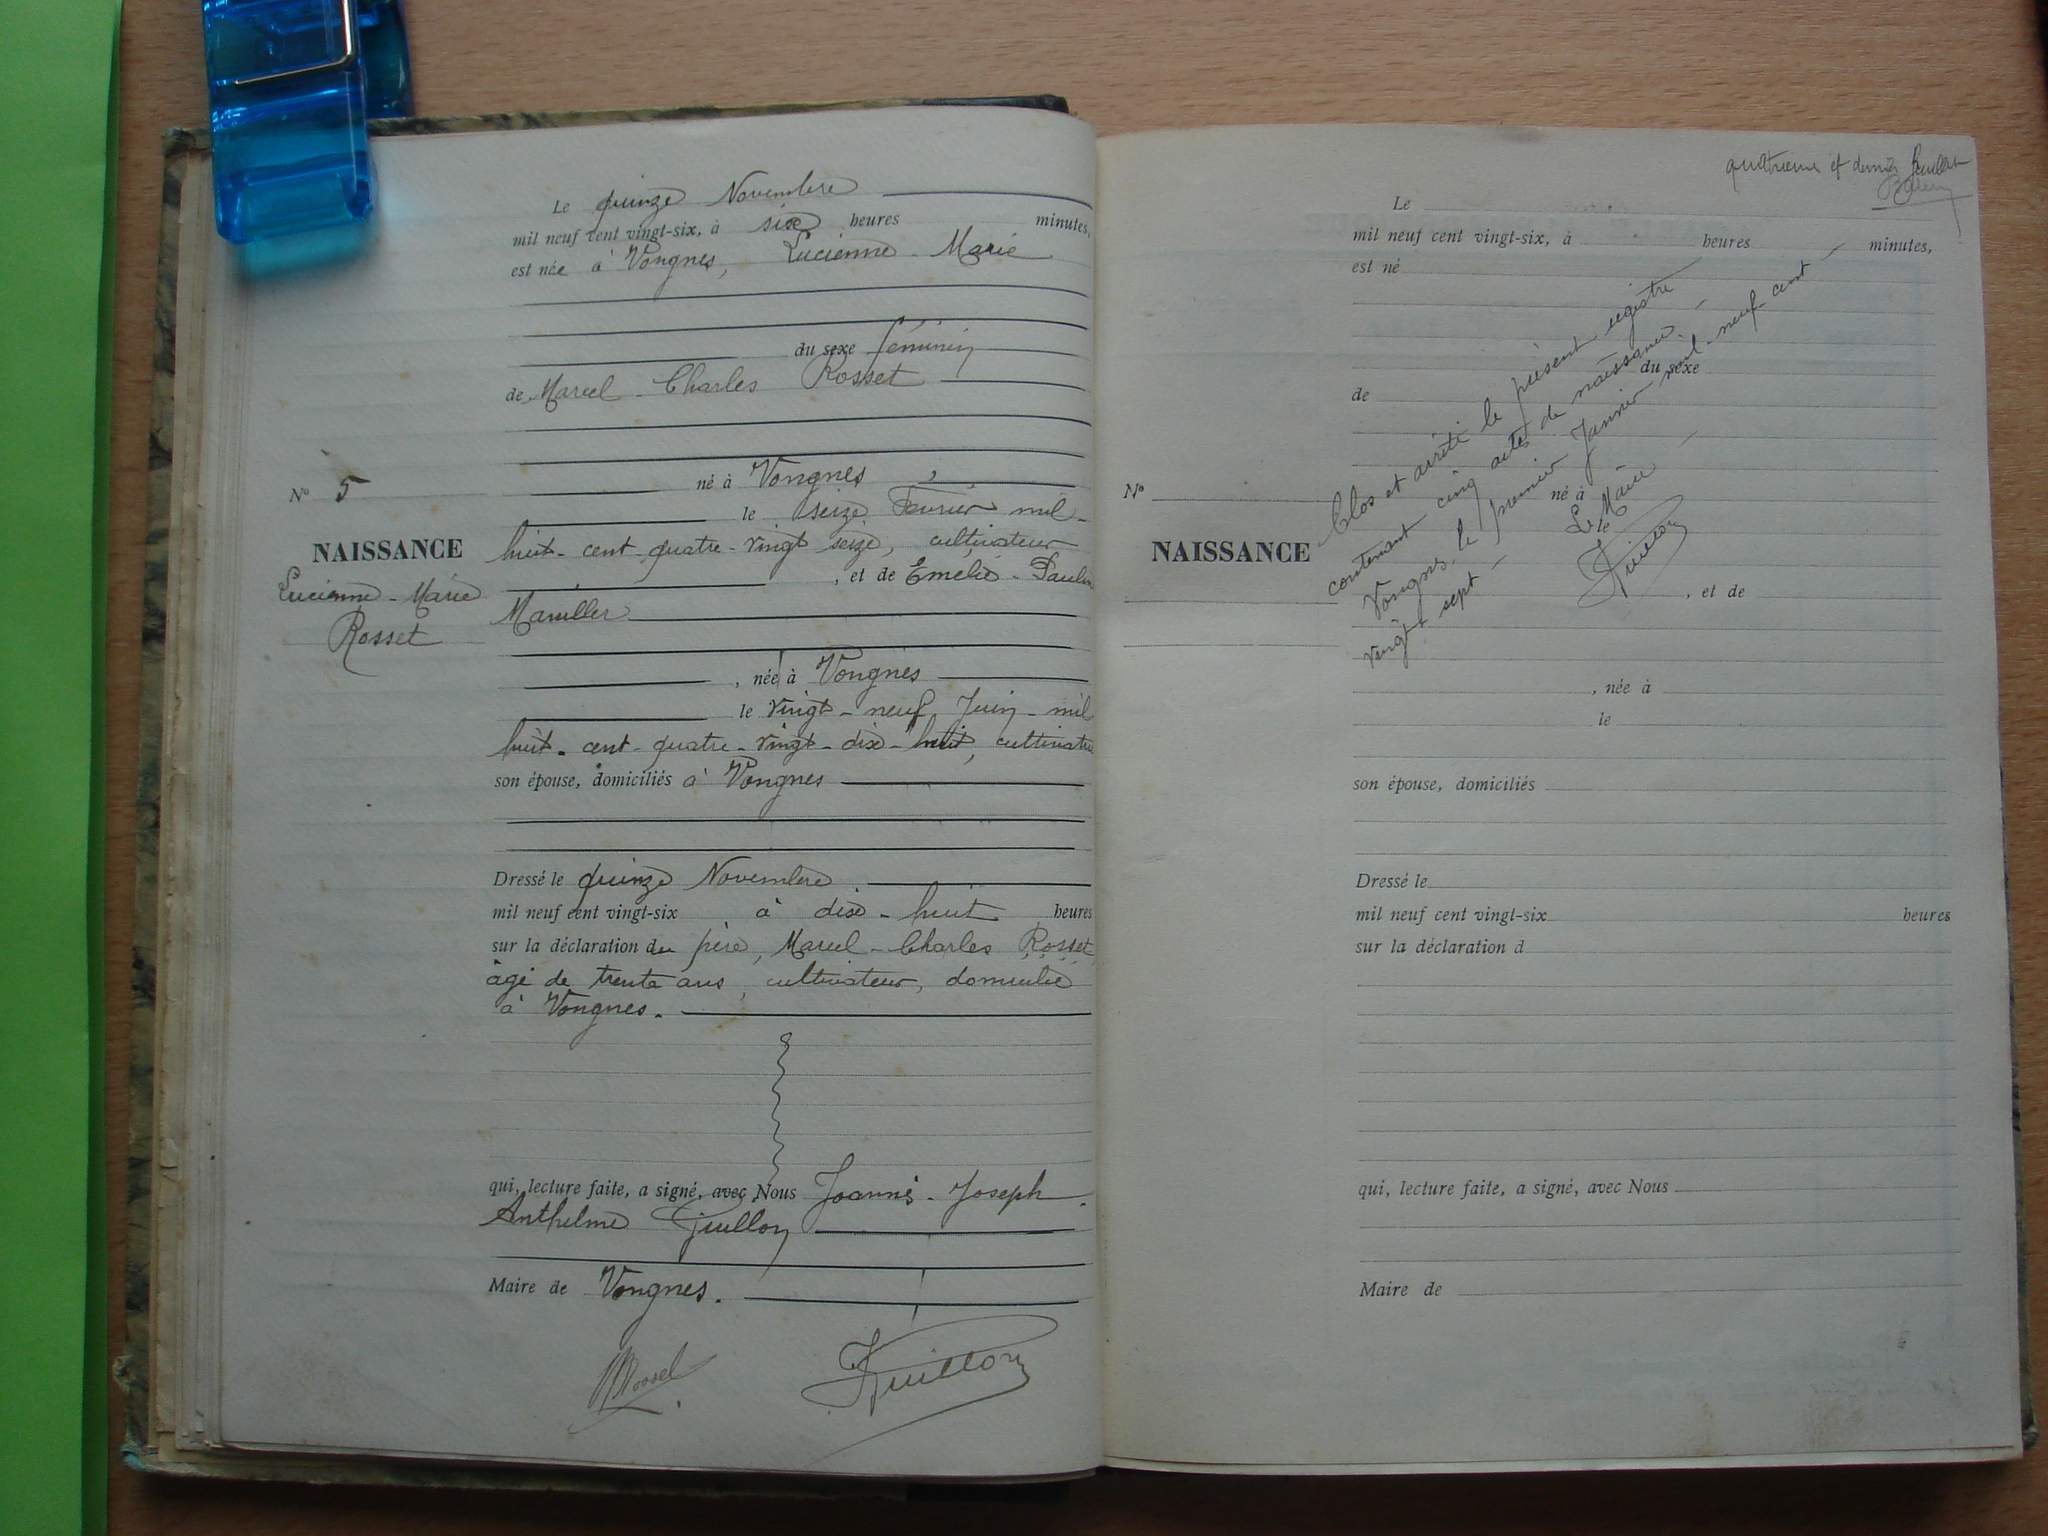 Le quinze Novembre
mil neuf cent vingt-six, à six heures minutes,
est née à Vongnes, Lucienne - Marie
du sexe féminin
de Marcel - Charles Rosset
né à Vongnes,
le seize Février mil -
huit - cent quatre - vingt seize, cultivateur
, et de Emelie - Pauline
Maniller
, née à Vongnes
le vingt - neuf Juin - mil
huit - cent - quatre - vingt - dix - huit, cultivatrice
son épouse, domiciliés à Vongnes
Dressé le quinze Novembre
mil neuf cent vingt-six à dix - huit heures
sur la déclaration du père, Marcel - Charles Rosset
âgé de trente ans, cultivateur, domicilié
à Vongnes.
qui, lecture faite, a signé, avec Nous Joannès - Joseph -
Anthelme Guillon
Maire de Vongnes.
MRosset
JGuillon
N° 5
NAISSANCE
Lucienne - Marie
Rosset
quatrième et dernier feuillet
Le
mil neuf cent vingt-six, à heures minutes,
est né
du sexe
de
né à
le
, et de
, née à
le
son épouse, domiciliés
Dressé le
mil neuf cent vingt-six heures
sur la déclaration d
qui, lecture faite, a signé, avec Nous
Maire de
N°
NAISSANCE
Clos et arrêté le présent registre
contenant cinq actes de naissance. -
Vongnes, le premier Janvier mil - neuf - cent -
vingt sept -
Le Maire -
JGuillon